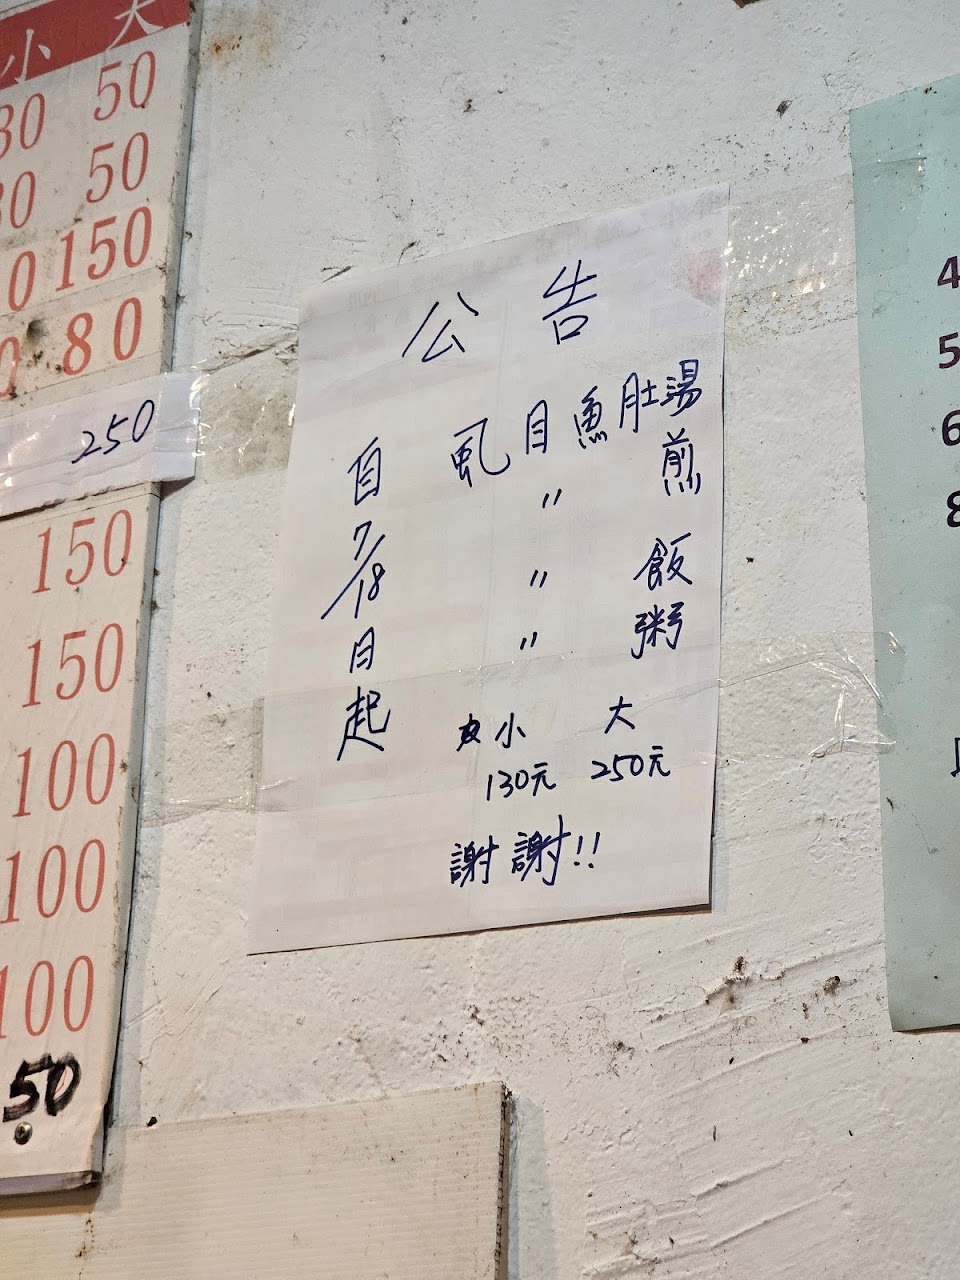 小 大
30 50
30 50
0 150
0 80
250
150
150
100
100
100
50
公告
自7/18日起
虱目魚肚湯
〃 煎
〃 飯
〃 粥
小 大
130元 250元
謝謝!!
4
5
6
8